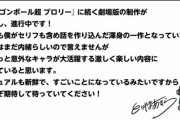 ゴンボール超 ブロリー」に続く劇場版の制作が
し、進行中です！
も僕がセリフも含め話を作り込んだ渾身の一作となっていい
はまだ内緒らしいので言えませんが
っと意外なキャラが大活躍する激しく楽しい内容に
ていると思います。
ジュアルも斬新で、すごいことになっているみたいですから
ぜひ期待して待っていてください！